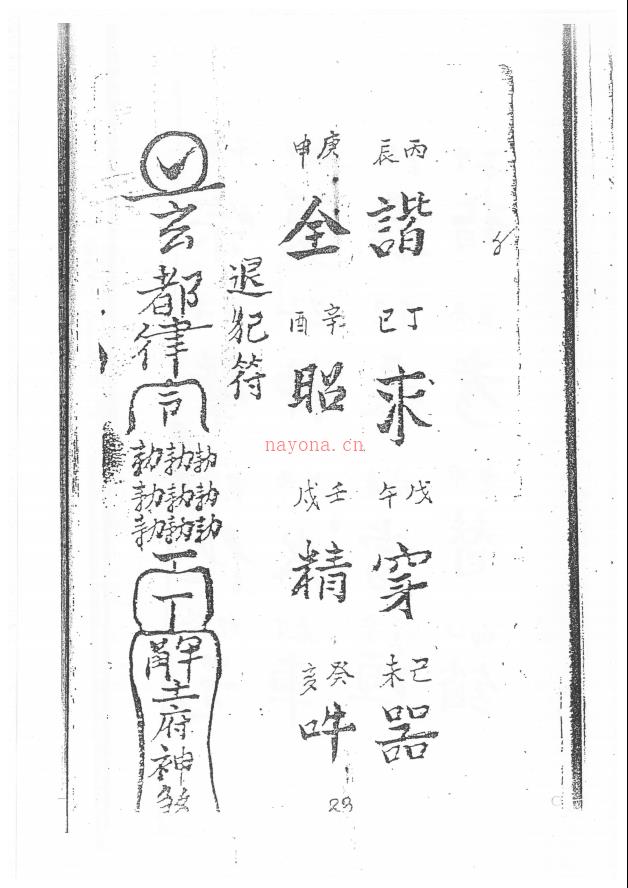 丙辰 諧 丁巳 求 戊午 穿 己未 器
庚申 全 辛酉 昭 壬戌 精 癸亥 吽
退犯符
玄都律令
勅勅勅
勅勅勅
勅勅勅
土府神煞
nayona.cn
29